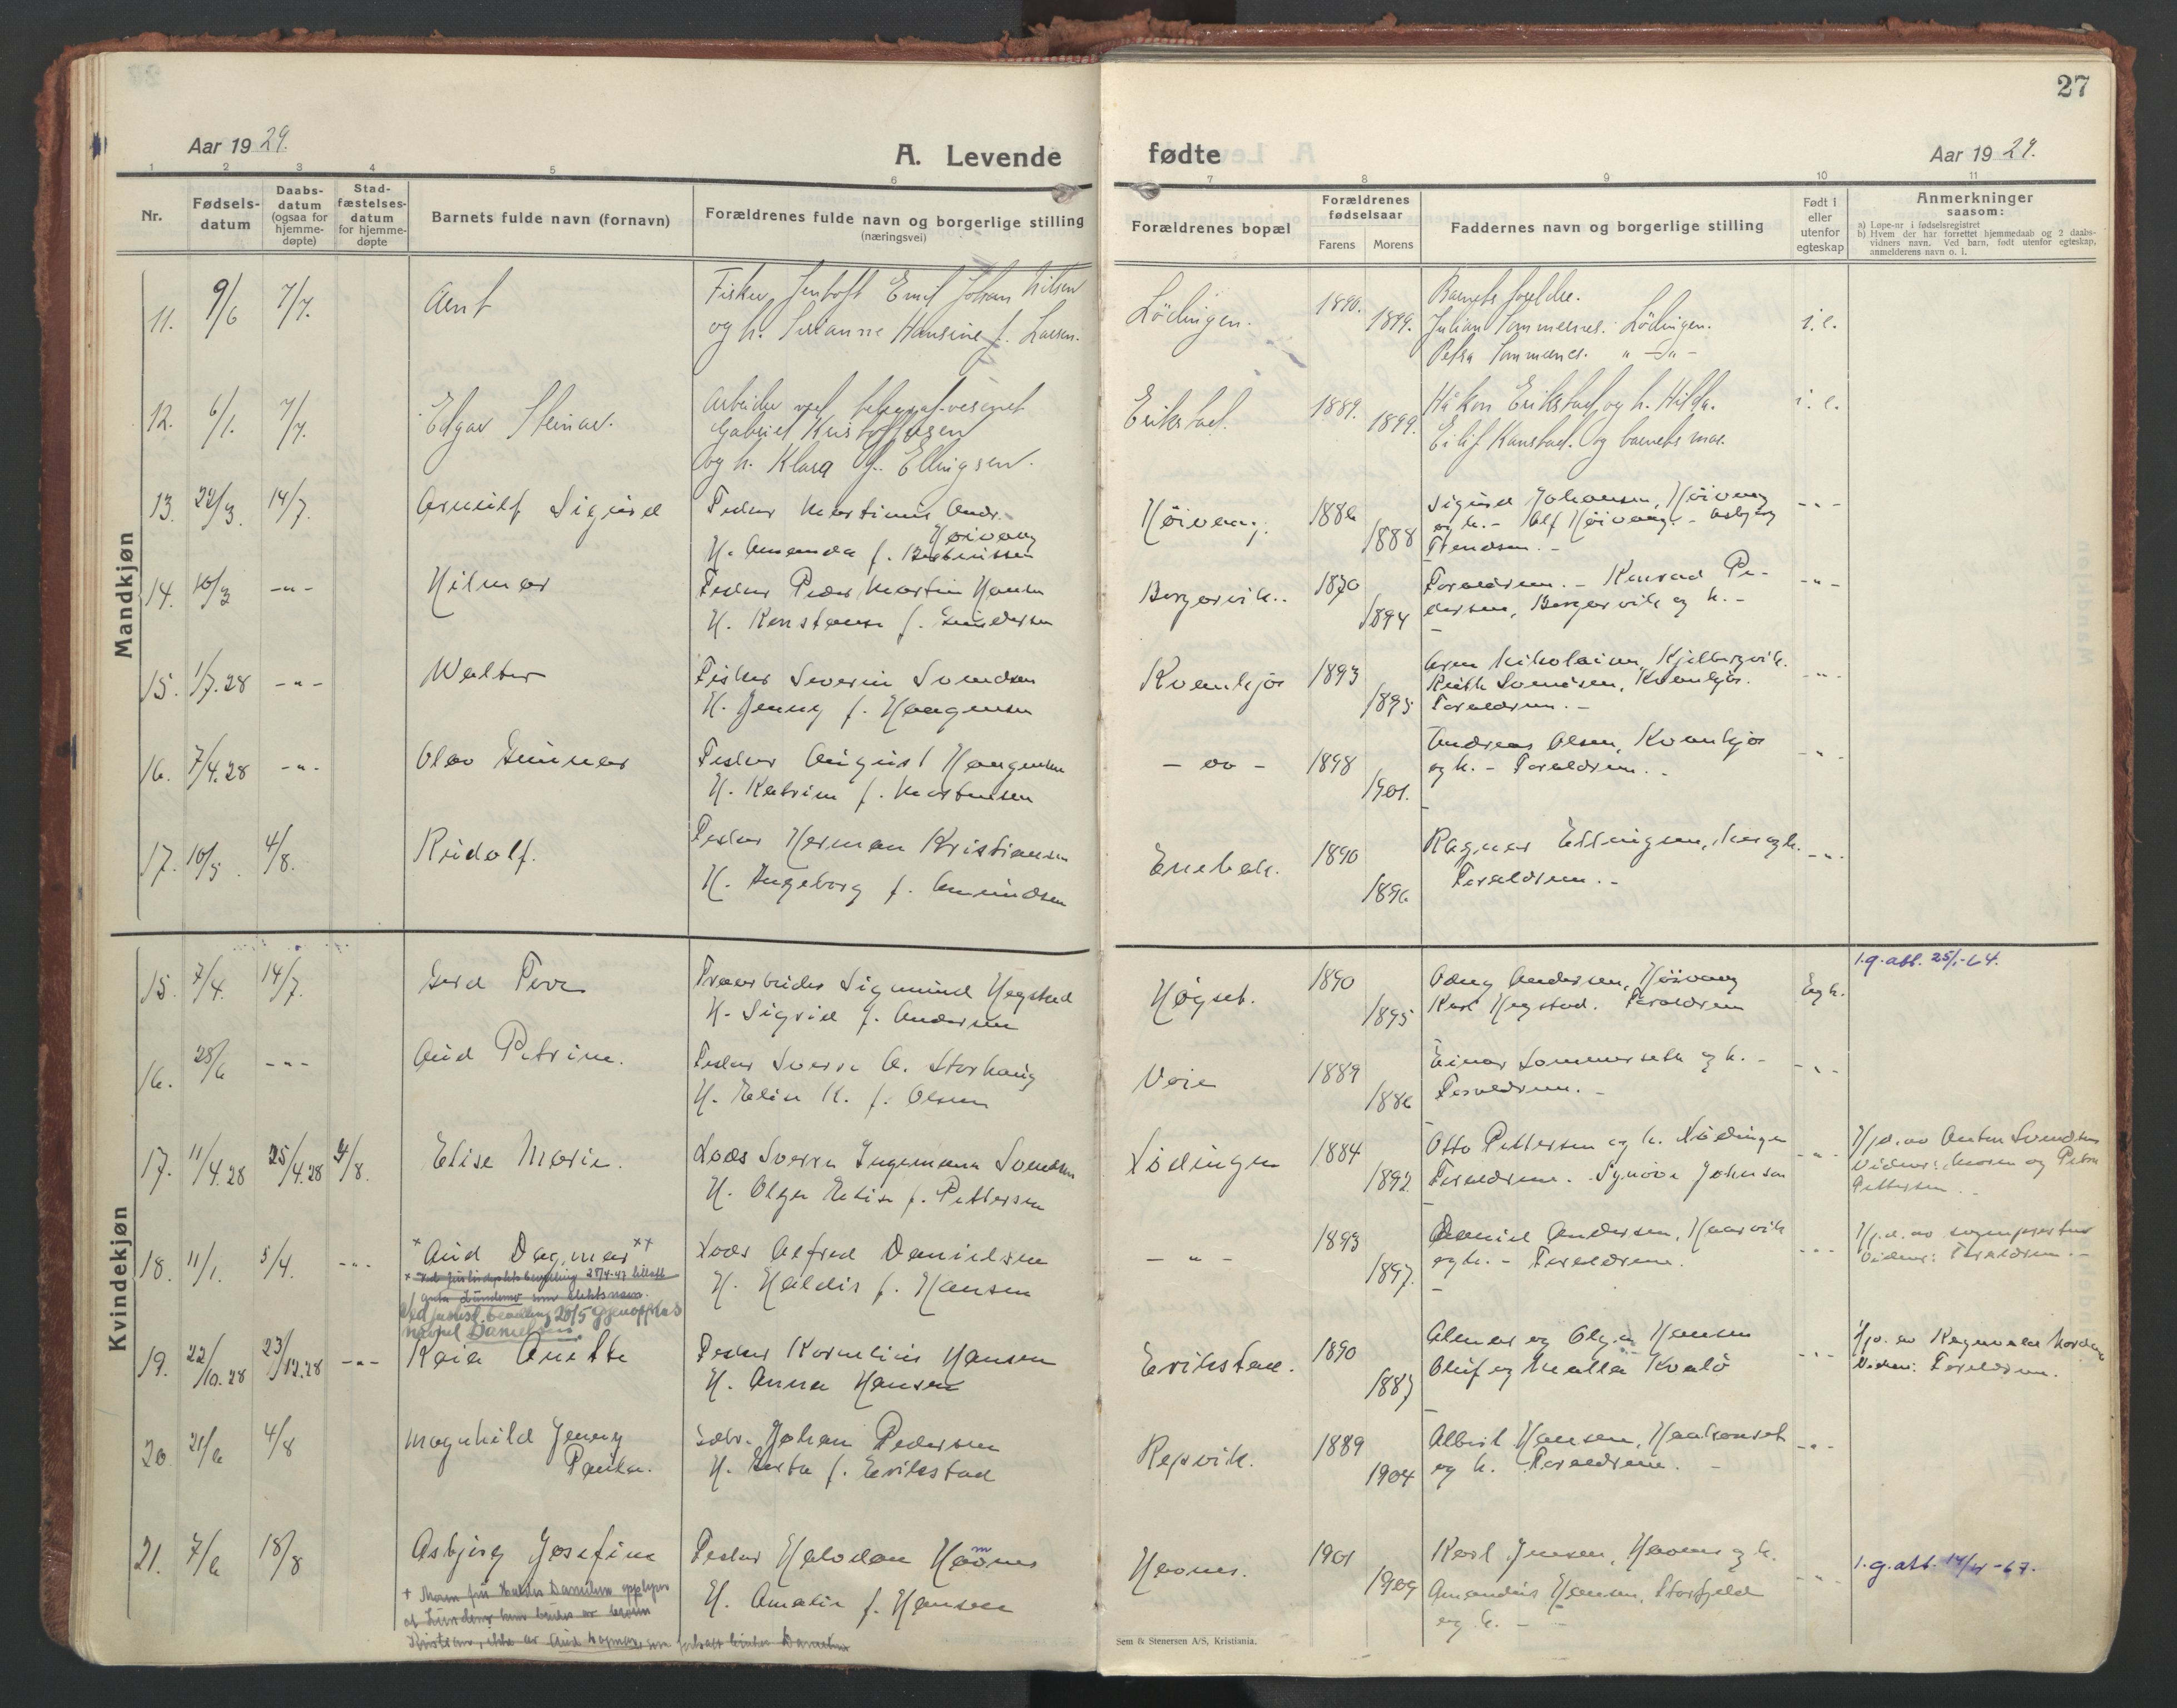 27
Aar 1929.
A. Levende
fødte
Aar 1929.
1 2 3 4 5 6 7 8 9 10 11
Nr.
Fødsels-
datum
Daabs-
datum
(ogsaa for
hjemme-
døpte)
Stad-
fæstelses-
datum
for hjemme-
døpte
Barnets fulde navn (fornavn)
Forældrenes fulde navn og borgerlige stilling
(næringsvei)
Forældrenes bopæl
Forældrenes
fødselsaar
Farens Morens
Faddernes navn og borgerlige stilling
Født i
eller
utenfor
egteskap
Anmerkninger
saasom:
a) Løpe-nr i fødselsregistret
b) Hvem der har forrettet hjemmedaab og 2 daabs-
vidners navn. Ved barn, født utenfor egteskap,
anmelderens navn o. l.
Mandkjøn
11. 9/6 7/7. Arnt
Fisker Jentoft Emil Johan Nilsen
og h. Susanne Hansine f. Larsen.
Lödingen. 1890. 1899.
Barnets foreldre.
Julian Sommernes. Lödingen.
Petra Sommernes. " - " -
i. e.
12. 6/1. 7/7. Edgar Steinar.
Arbeider ved telegraf-vesenet
Gabriel Kristoffersen
og h. Klara f. Ellingsen.
Erikstad. 1889. 1899.
Håkon Erikstad og h. Hilda.
Eilif Kanstad. Og barnets mor.
i. e.
13. 22/3. 14/7. Arnulf Sigurd
Fisker Martinus Andr.
Høivang
H. Amanda f.
Høivang. 1886 1888
Sigurd Johansen, Høivang
og h. - Alf Høivang. - Asbjørg
- " -
14. 10/3 - " - Hilmar
Fisker Peder Martin Hansen
H. Konstanse f. Gundersen
Borgarvik.. 1870 1894
Foreldrene. - Konrad Pe-
dersen, Borgarvik og h. -
- " -
15. 1/7.28 - " - Walter
Fisker Severin Svendsen
H. Jenny f. Haagensen
Kvannkjos 1893 1895
Aron Nikolaisen, Kjellbergvik.
Ruth Svendsen, Kvannkjos.
Foreldrene. -
- " -
16. 7/4.28 - " - Olav Gunnar
Fisker August Haagensen
H. Katrine f. Mortensen
- oo - 1898 1901.
Andreas Olsen, Kvannkjos
og h. - Foreldrene. -
- " -
17. 10/5. 4/8. Rudolf.
Fisker Herman Kristiansen
H. Ingeborg f. Amundsen
Enebak. 1890 1896
Ragnar Ellingsen, og h.
Foreldrene. -
- " -
Kvindekjøn
15. 7/4. 14/7. Gerd Tove
Træarbeider Sigmund Hegstad
H. Sigrid f. Andersen
Høgset. 1890 1895
Odny Andersen, Höivang
Karl Hegstad. Foreldrene
Egh.
l.g.att. 25/1-64.
16. 28/6 - " - Aud Petrine.
Fisker Sverre A. Storhaug
H. Elise K. f. Olsen
Voie 1889 1886
Einar Sommerseth og h. -
Foreldrene. -
- " -
17. 11/4.28 25/4.28 4/8. Elise Marie.
Lods Sverre Ingemann Svendsen
H. Olga Elise f. Pettersen
Lödingen 1884 1892
Otto Pettersen og h. Lödingen
Foreldrene. Synöve Johnsen
- " -
Hjd. av Anton Svendsen
Vidner: Moren og Petra
Pettersen -
18. 11/1. 5/4. - " - × Aud Dagmar ××
Lods Alfred Danielsen
H. Haldis f. Hansen
- " - 1893 1897.
Daniel Andersen, Kaarvik
og h. - Foreldrene.
- " -
Hj.d. av sogneprestens
Vidner: Foreldrene. -
19. 22/10.28 23/12.28 - " - Kaia Anette
Fisker Kornelius Hansen
H. Anna Hansen
Erikstad. 1890 1887
Almar og Olga Hansen
Oluf og Malla Kvalö
- " -
Hjd. av Ragnvald
Vidner: Foreldrene.
20. 21/6 4/8 Magnhild Jenny
Paula.
Johan Pedersen
H. Herta f. Erikstad
Repvik. 1889 1904
Albert Hansen, Haakonset
og h. Foreldrene. -
- " -
21. 7/6 18/8 Asbjørg Josefine
Fisker Halvdan Havnes
H. Amalie f. Hansen
Havnes. 1901 1909
Karl Jensen, Havnes og h.
Amandus Hansen, Storfjeld
og h. -
- " -
l.g.att. 14/4-67.
Sem & Stenersen A/S, Kristiania.